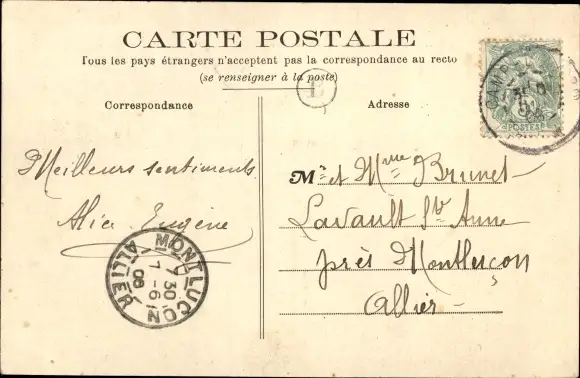 CARTE POSTALE
Tous les pays étrangers n'acceptent pas la correspondance au recto
(se renseigner à la poste)
Correspondance
Adresse
Meilleurs sentiments
Eugène
Mr et Mme Brunet
Lavault Ste Anne
près Montluçon
Allier
MONTLUÇON
7 30
1-6
08
ALLIER
POSTES